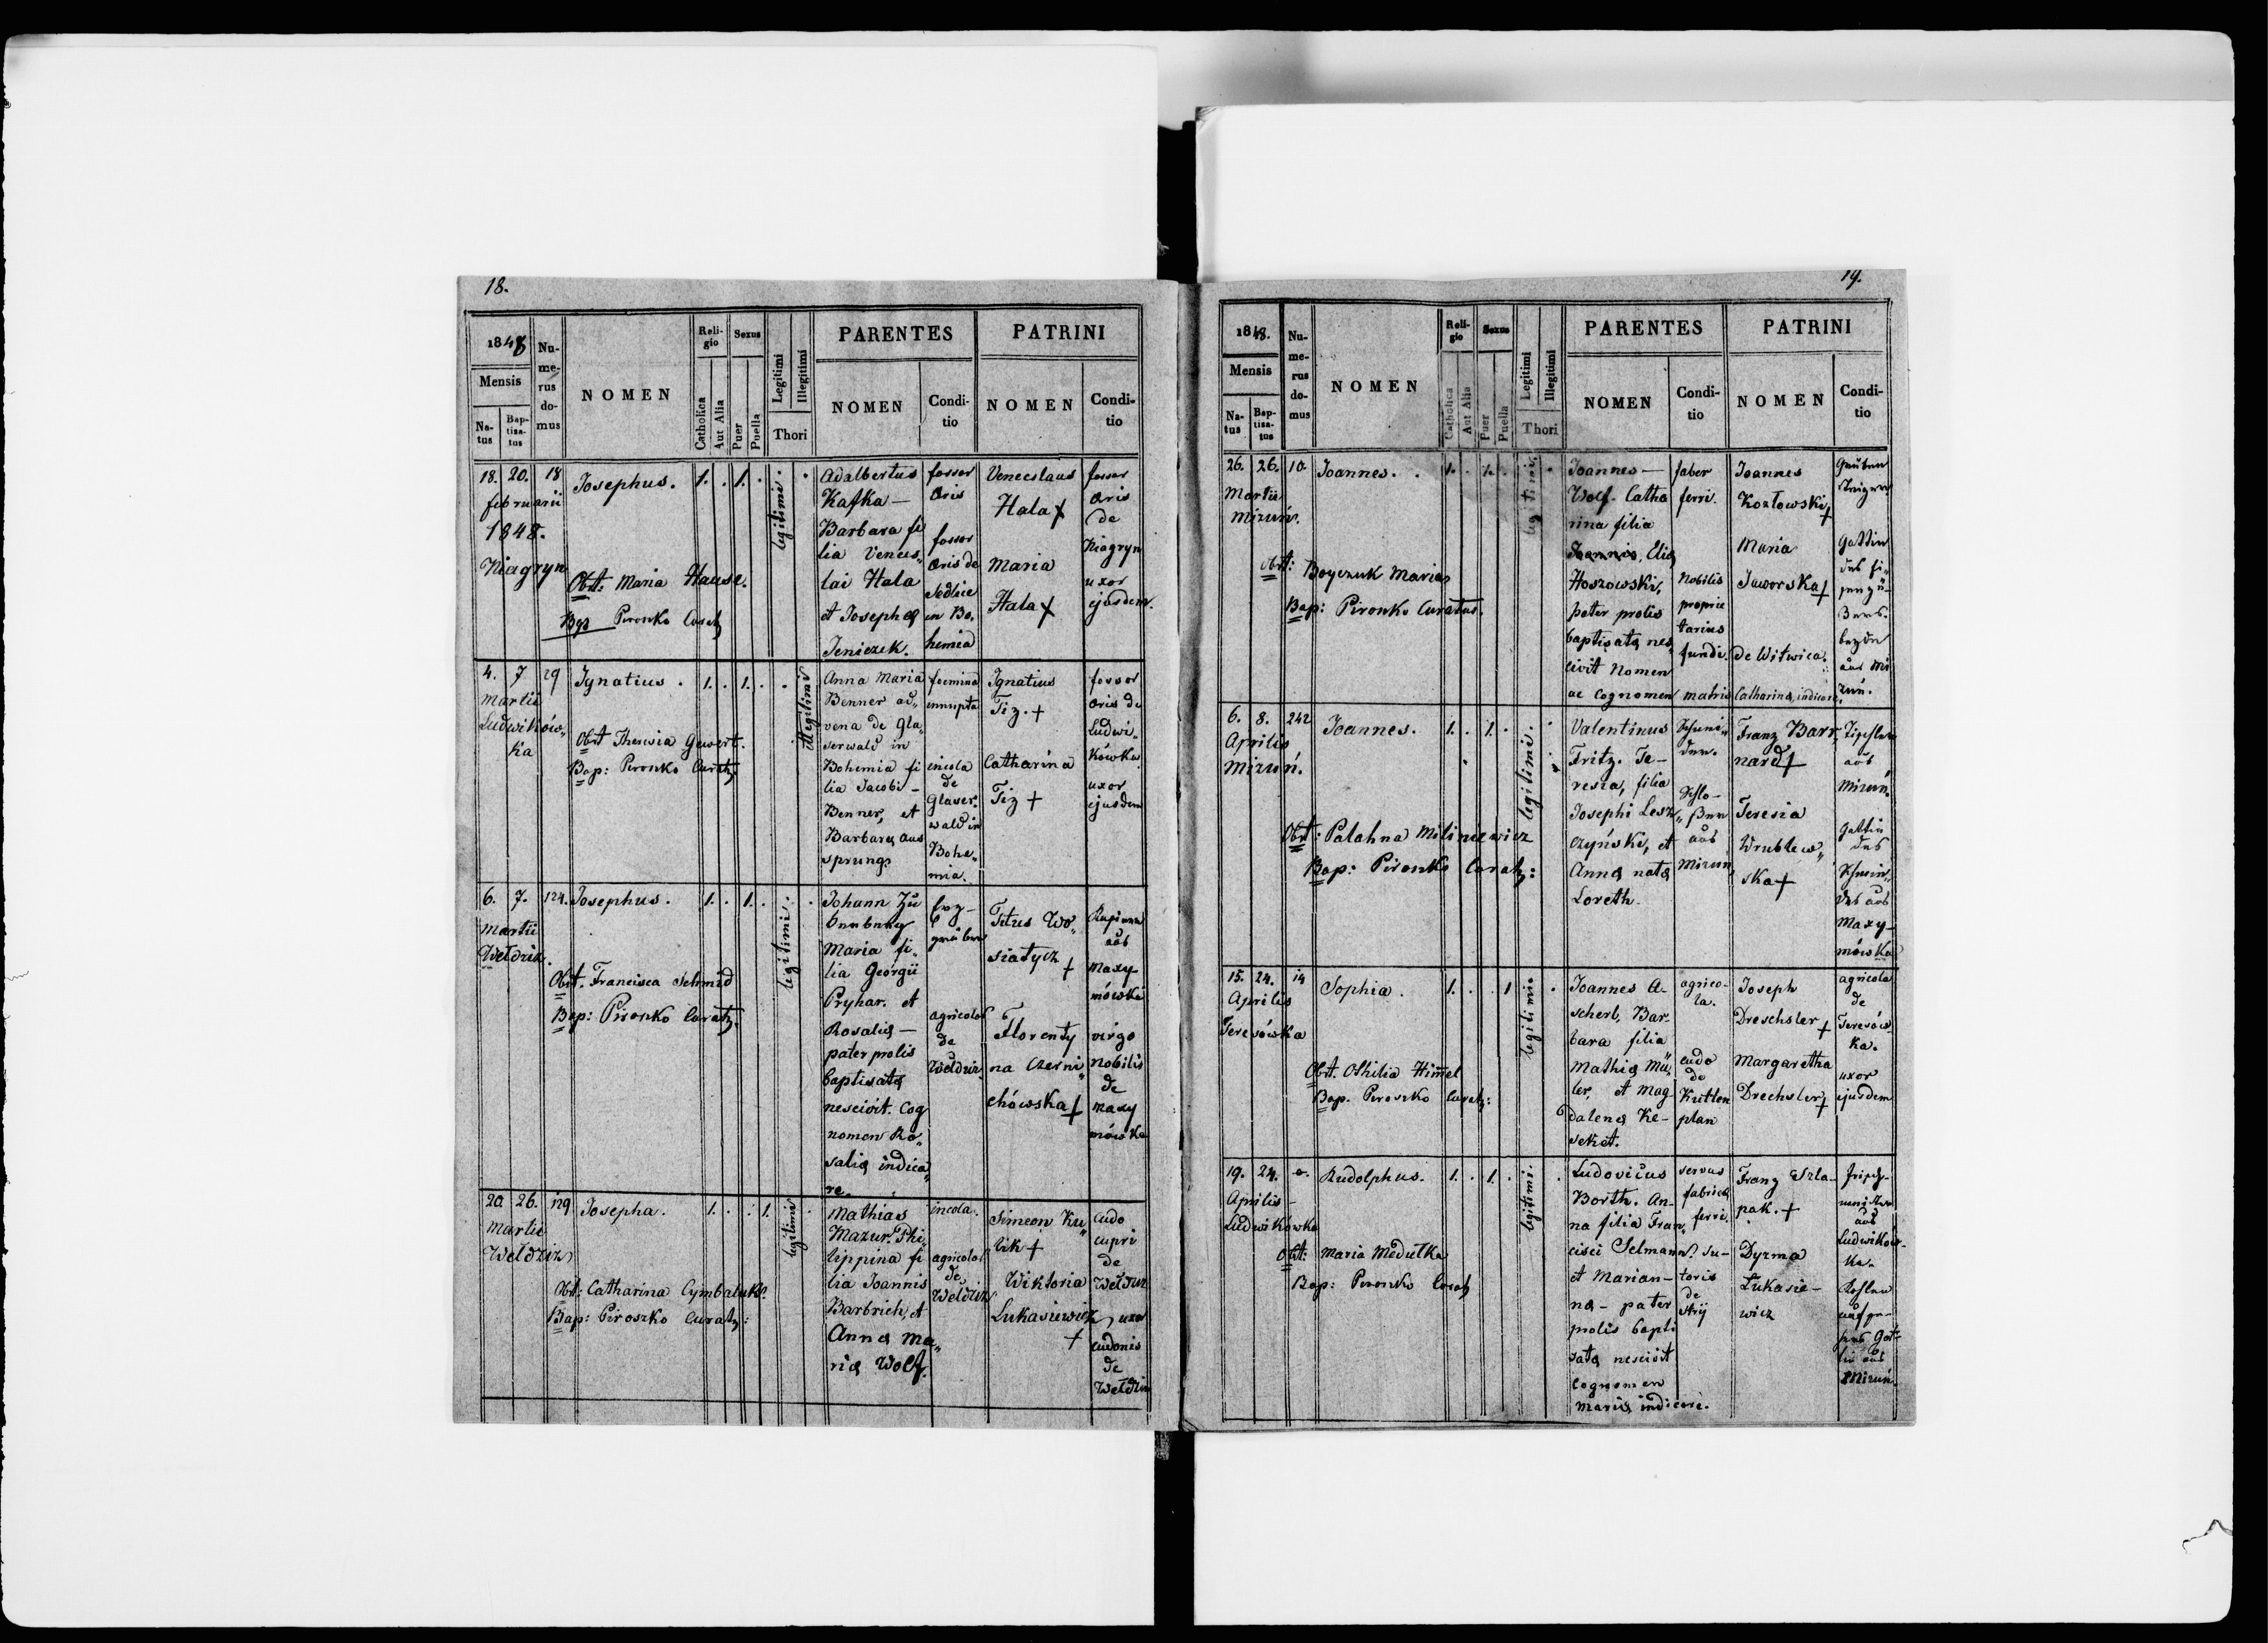 18.
1848
Mensis
Na-
tus
Bap-
tisa-
tus
Nu-
me-
rus
do-
mus
NOMEN
Reli-
gio
Catholica
Aut Alia
Sexus
Puer
Puella
Legitimi
Illegitimi
Thori
PARENTES
NOMEN
Condi-
tio
PATRINI
NOMEN
Condi-
tio
18. 20. 18
februarii
1848.
Niagryn
Josephus.
Obst: Maria Haase.
Bap Pironko Curatg
1. . 1. .
legitimi.
Adalbertus
Kafka —
Barbara fi
lia Vences„
lai Hala
et Josepha
Jeniczek.
fossor
aris
fossor
aris de
Sedlice
in Bo„
hemia
Venceslaus
Hala +
Maria
Hala +
fossor
aris
de
Niagryn
uxor
ejusdem.
4. 7 29
Martii
Ludwików„
ka
Ignatius.
Obst Theresia Gewert.
Bap: Pironko Curatg.
1. . 1. .
illegitimi
Anna Maria
Benner ad„
vena de Gla„
serwald in
Bohemia fi
lia Jacobi —
Benner, et
Barbara aus
sprungs
foemina
innupta
incola
de
Glaser„
wald in
Bohe„
mia.
Ignatius
Tiz. +
Catharina
Tiz +
fossor
aris de
Ludwi„
kówka
uxor
ejusdem
6. 7. 124.
Martii
Wełdziz.
Josephus.
Obst. Francisca Schmid
Bap: Pironko Curatg.
1. . 1. .
legitimi.
Johann
Maria fi„
lia Georgii
Pryhar. et
Rosalia —
pater prolis
baptisata
nescivit. Cog
nomen Ro„
salia indica„
re.
agricola
de
Wełdziz.
Titus Wo„
siatycz +
Florenty
na Czerni„
chówska +
aus
Maxy
mówka
virgo
nobilis
de
Maxy
mówka
20. 26. 129
Martii
Wełdziz
Josepha.
Obst: Catharina Cymbaluk.
Bap: Piroszko Curatg:
1. . . 1.
legitimi
Mathias
Mazur. Phi„
lippina fi
lia Joannis
Barbrich, et
Anna Ma„
ria Wolf.
incola.
agricola
de
Wełdziz
Simeon Ku„
lik +
Wiktoria
Lukasiewicz
+
cudo
cupri
de
Wełdziz
, uxor
cudonis
de
Wełdziz
19.
1848.
Mensis
Na-
tus
Bap-
tisa-
tus
Nu-
me-
rus
do-
mus
NOMEN
Reli-
gio
Catholica
Aut Alia
Sexus
Puer
Puella
Legitimi
Illegitimi
Thori
PARENTES
NOMEN
Condi-
tio
PATRINI
NOMEN
Condi-
tio
26. 26. 10.
Martii
Mizuń.
Joannes.
Obst: Boyczuk Maria
Bap: Pironko Curatus.
1. . 1. .
legitimi.
Joannes —
Wolf. Catha
rina filia
Joannis, Elia
Hoszowski,
pater prolis
baptisata nes„
civit Nomen
ac Cognomen matris Catharina indicare.
faber
ferri.
Nobilis
proprie
tarius
fundi.
Joannes
Kozłowski +
Maria
Jaworska +
de Witwica.
Gattin
aus Mi
zuń.
6. 8. 242
Aprilis
Mizuń.
Joannes.
Obst: Palahna Miliniewicz
Bap: Pironko Curatg:
1. . 1. .
legitimi.
Valentinus
Fritz. Te-
resia, filia
Josephi Lesz„
czyński, et
Anna nata
Loreth.
Schnei„
der.
Schlo-
sser
aus
Mizun
Franz Barr,
nard +
Teresia
Wrublew„
ska +
Tischler
aus
Mizuń.
Gattin
des
aus
Maxy-
mówka
15. 24. 14
Aprilis
Teresówka
Sophia.
Obst. Othilia Himel
Bap. Piroszko Curatg:
1. . . 1
legitimi
Joannes A-
scherl, Bar-
bara filia
Mathia Mü„
ler, et Mag
dalena Ke-
seket.
agrico-
la.
cudo
de
Kutten
plan
Joseph
Dreschsler +
Margaretha
Drechsler +
agricola
de
Teresów
ka.
uxor
ejusdem
19. 24.
Aprilis —
Ludwikówka
Rudolphus.
Obst: Maria Medułka
Bap: Pironko Curatg
1. . 1. .
legitimi.
Ludovicus
Borth. An-
na filia Fran„
cisci Selmann.
et Marian-
na — pater
prolis bapti
sata nescivit
Cognomen
Maria indicare.
servus
fabrica
ferri.
su-
toris
de
Stry
Franz Szla-
pak. +
Dyzma
Łukasie-
wicz
aus
Ludwików-
ka.
aus
Mizuń.